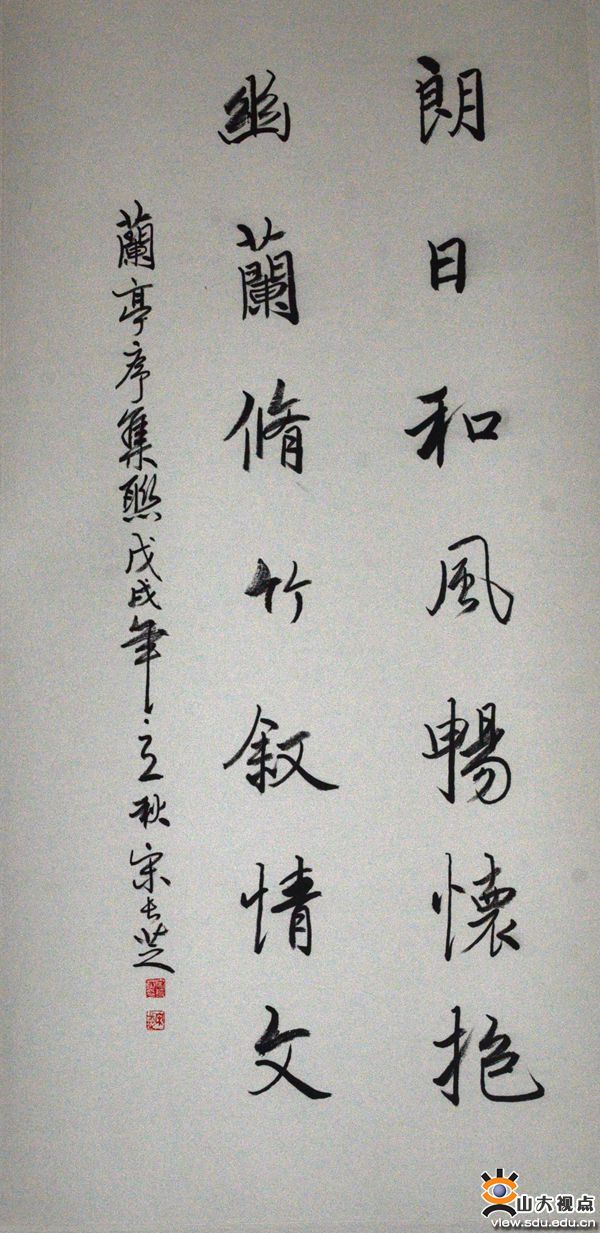 朗日和風暢懷抱
幽蘭脩竹叙情文
蘭亭序集聯戊戌年立秋宋長芝
山大视点
view.sdu.edu.cn